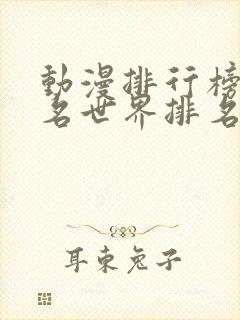 動漫排行榜
名世界排名
耳東兔子